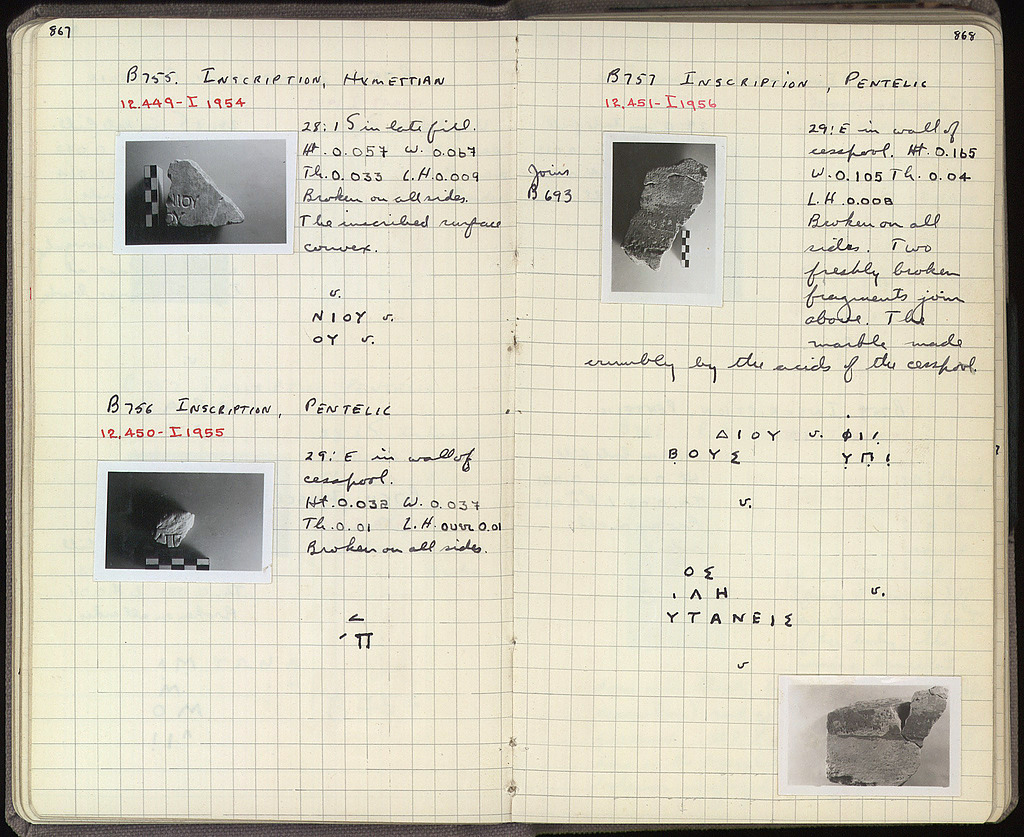 867
B755. INSCRIPTION, HYMETTIAN
12.449-I 1954
28:15 in late fill.
Ht. 0.057 W. 0.067
Th. 0.033 L.H. 0.009
Broken on all sides.
The inscribed surface
convex.
v.
ΝΙΟΥ v.
ΟΥ v.
B756 INSCRIPTION, PENTELIC
12.450-I 1955
29:E in wall of
cesspool.
Ht. 0.032 W. 0.037
Th. 0.01 L.H. over 0.01
Broken on all sides.
Π
868
B757 INSCRIPTION, PENTELIC
12.451-I 1956
Joins
B693
29:E in wall of
cesspool. Ht. 0.165
W. 0.105 Th. 0.04
L.H. 0.008
Broken on all
sides. Two
freshly broken
fragments join
above. The
marble made
crumbly by the acids of the cesspool.
ΔΙΟΥ v. ΦΙ
ΒΟΥΣ ΥΠ
v.
ΟΣ
ΙΛΗ v.
ΥΤΑΝΕΙΣ
v.